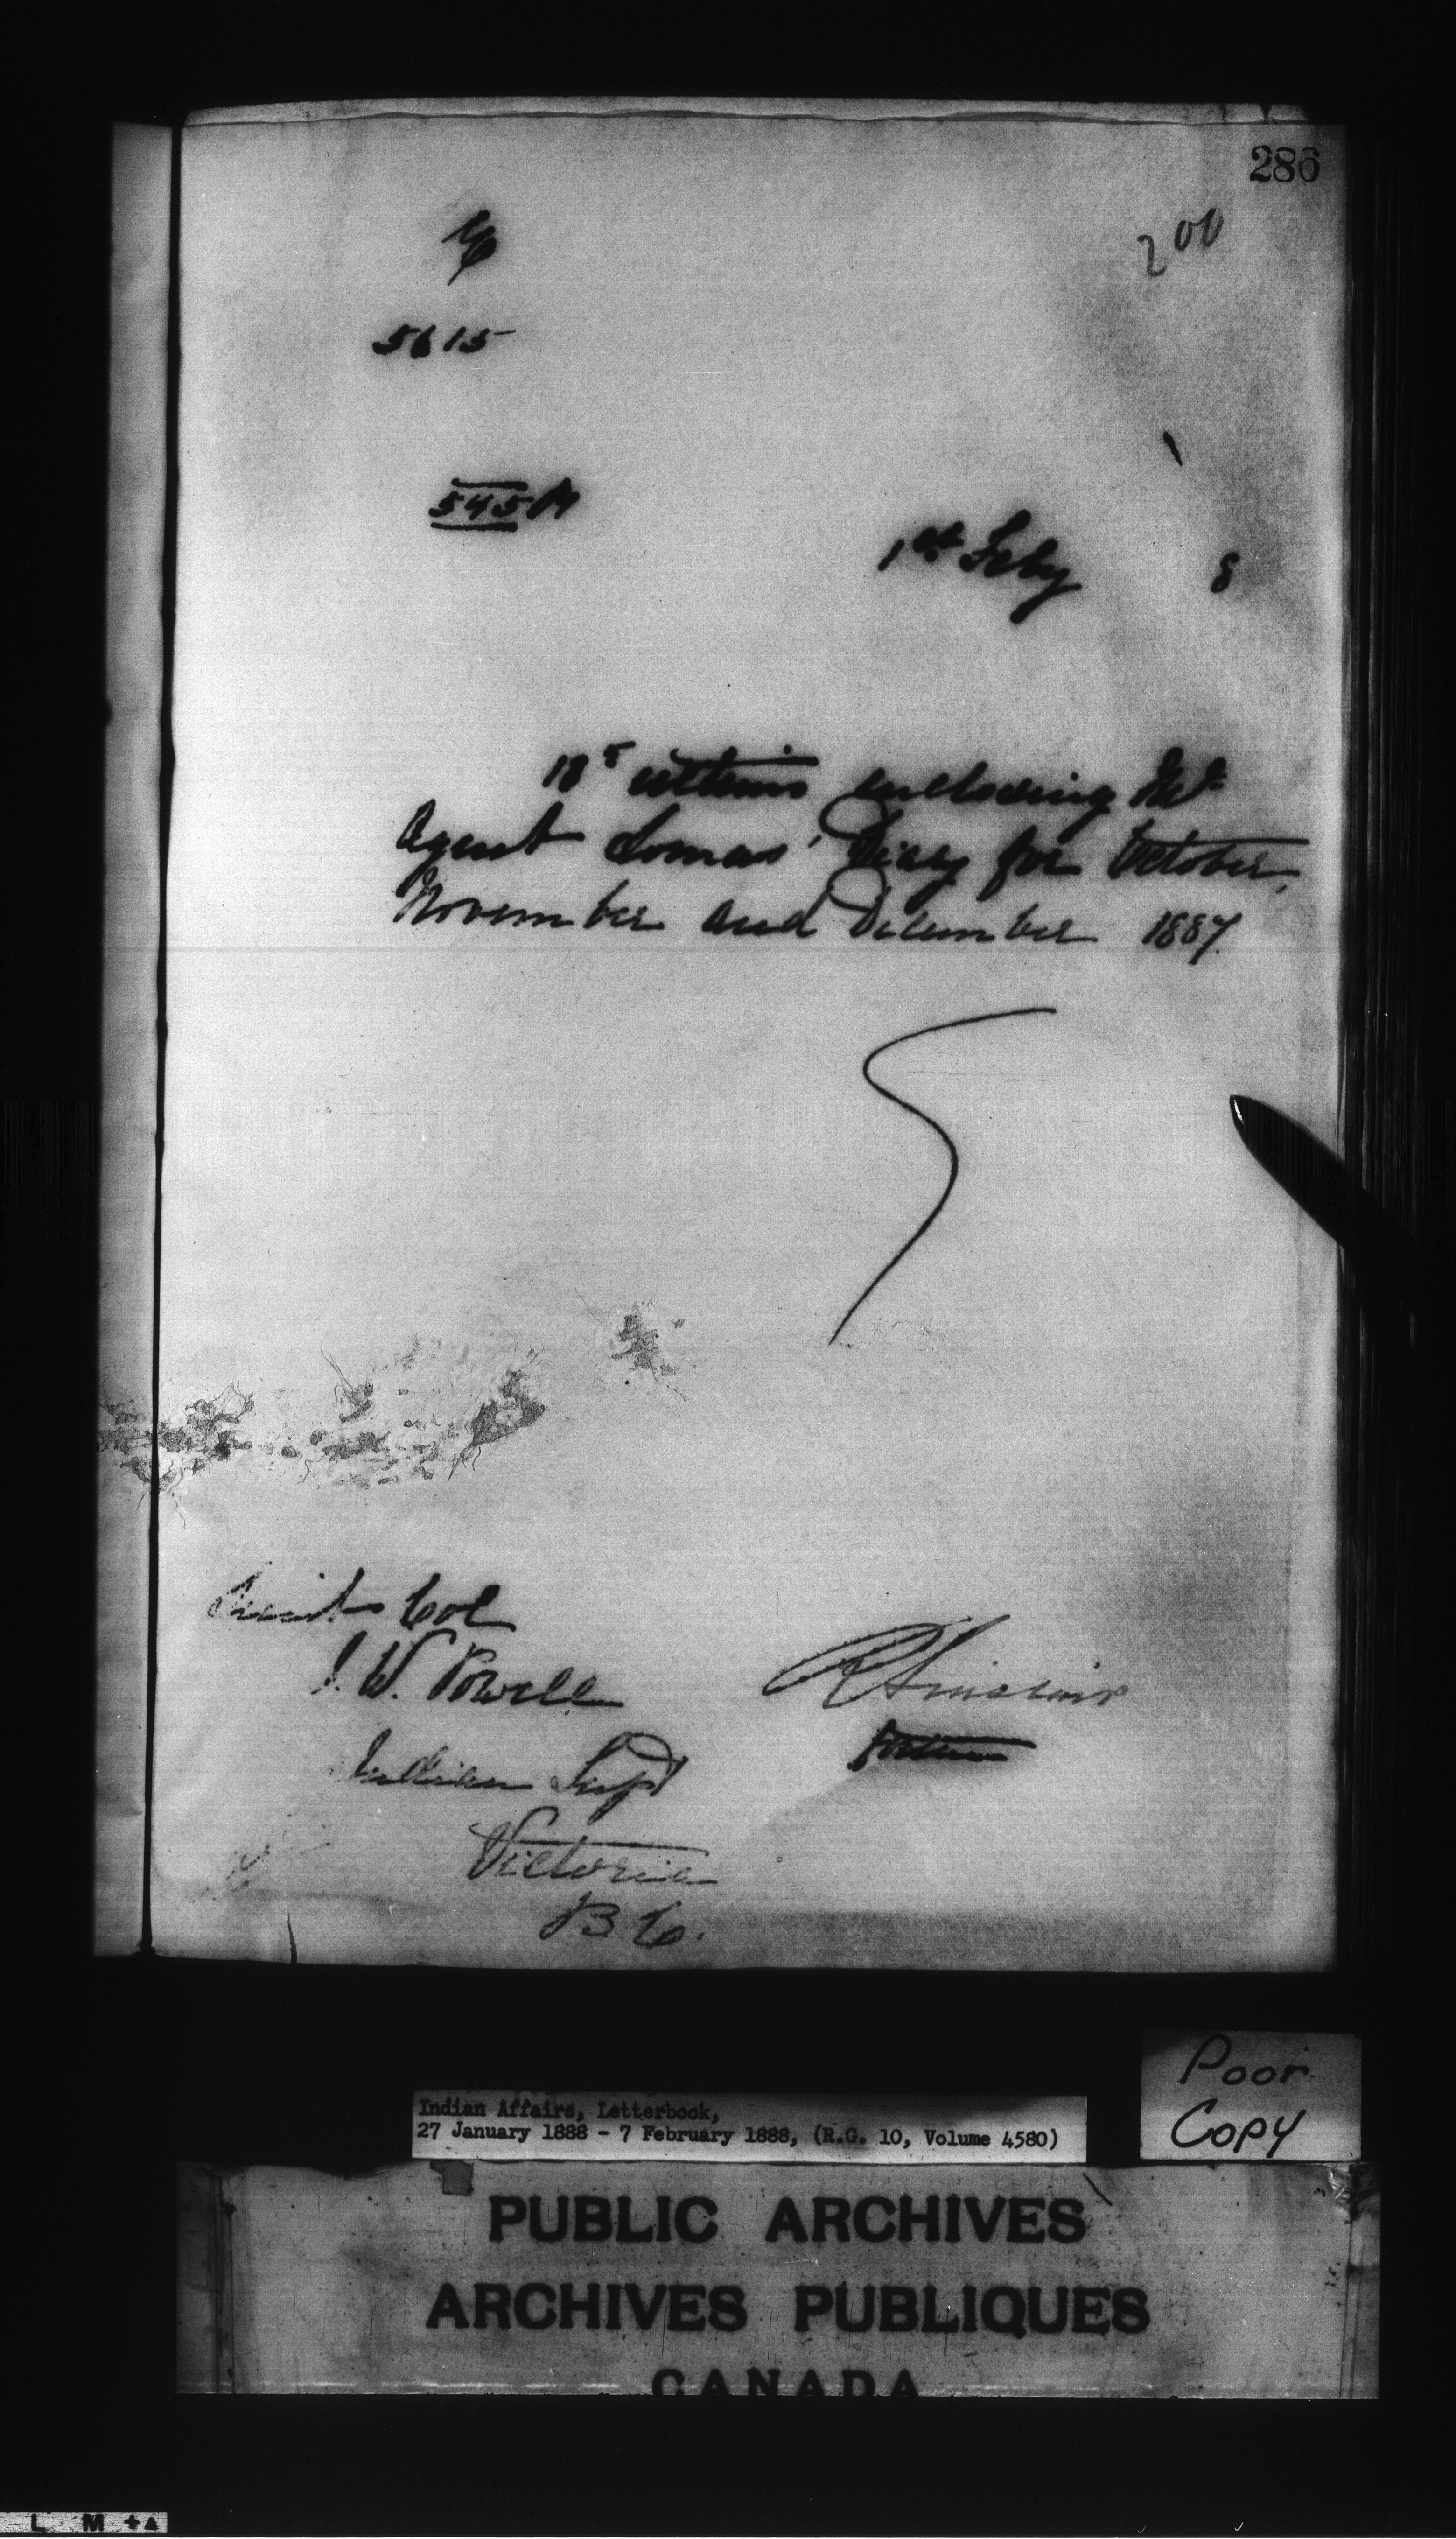 286
200
5615
545 M
1st Feby 8
18th ultimo enclosing Mr
Agent Lomas' Diary for October,
November and December 1887.
Lieut Col
I. W. Powell
Indian Supt
Victoria
B C.
R Sinclair
for
Poor
Copy
Indian Affairs, Letterbook,
27 January 1888 - 7 February 1888, (R.G. 10, Volume 4580)
PUBLIC ARCHIVES
ARCHIVES PUBLIQUES
CANADA
L M +